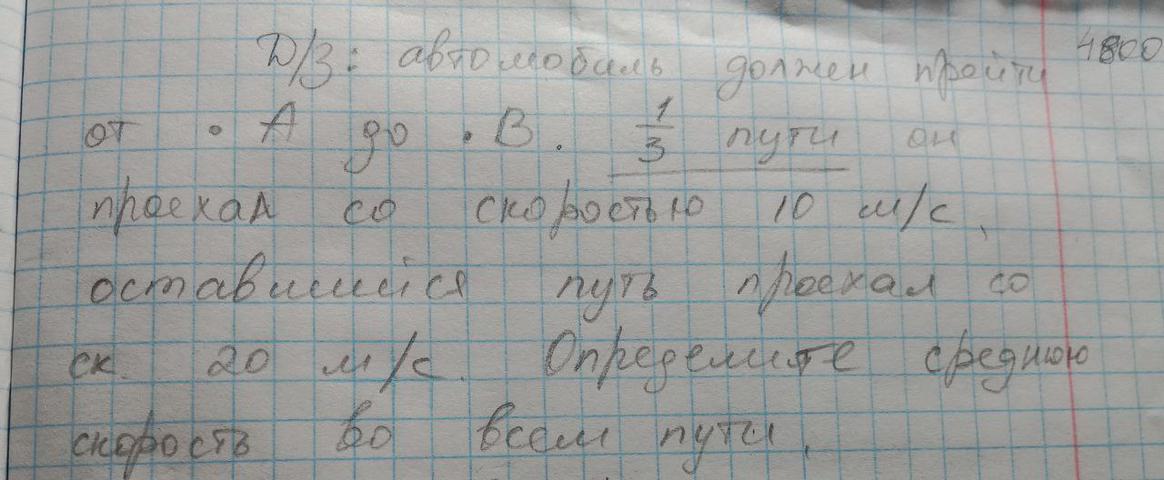 Д/З: автомобиль должен пройти 4800
от • А до • В. 1/3 пути он
проехал со скоростью 10 м/с,
оставшийся путь проехал со
ск. 20 м/с. Определите среднюю
скорость во всем пути.